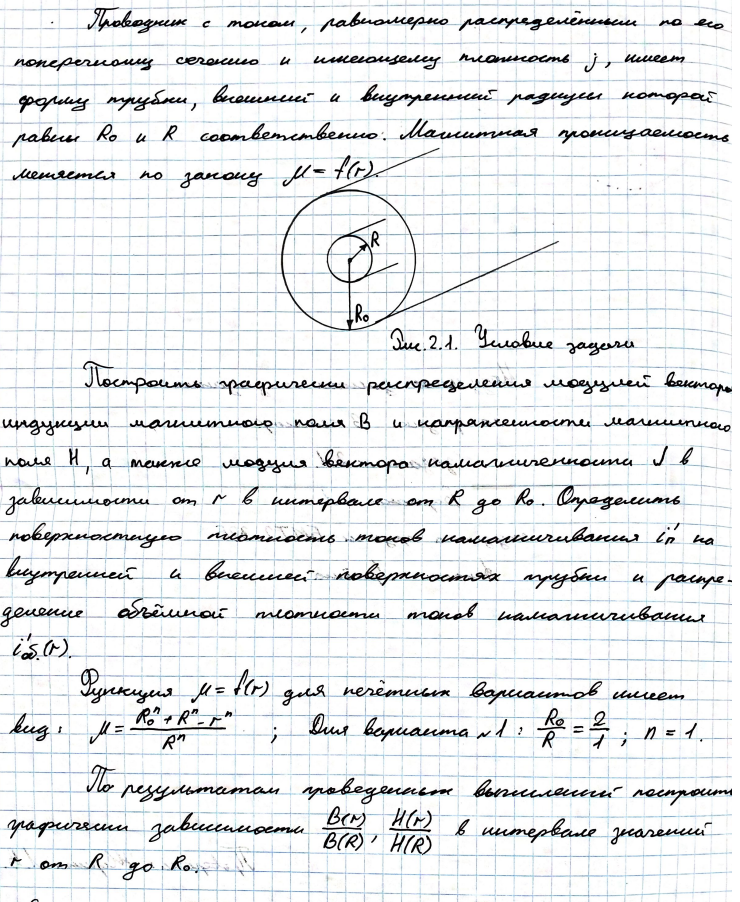 Проводник с током, равномерно распределённым по его
поперечному сечению и имеющему плотность j, имеет
форму трубки, внешний и внутренний радиусы которой
равны R₀ и R соответственно. Магнитная проницаемость
меняется по закону μ = f(r).
R
R₀
Рис.2.1. Условие задачи
Построить графически распределения модулей вектора
индукции магнитного поля B и напряженности магнитного
поля H, а также модуля вектора намагниченности J в
зависимости от r в интервале от R до R₀. Определить
поверхностную плотность токов намагничивания i'ₙ на
внутренней и внешней поверхностях трубки и распре-
деление объёмной плотности токов намагничивания
i'об.(r).
Функция μ = f(r) для нечётных вариантов имеет
вид: μ = (R₀ⁿ + Rⁿ - rⁿ)/Rⁿ ; Для варианта №1: R₀/R = 2/1; n = 1.
По результатам проведенных вычислений построить
графически зависимости B(r)/B(R), H(r)/H(R) в интервале значений
r от R до R₀.